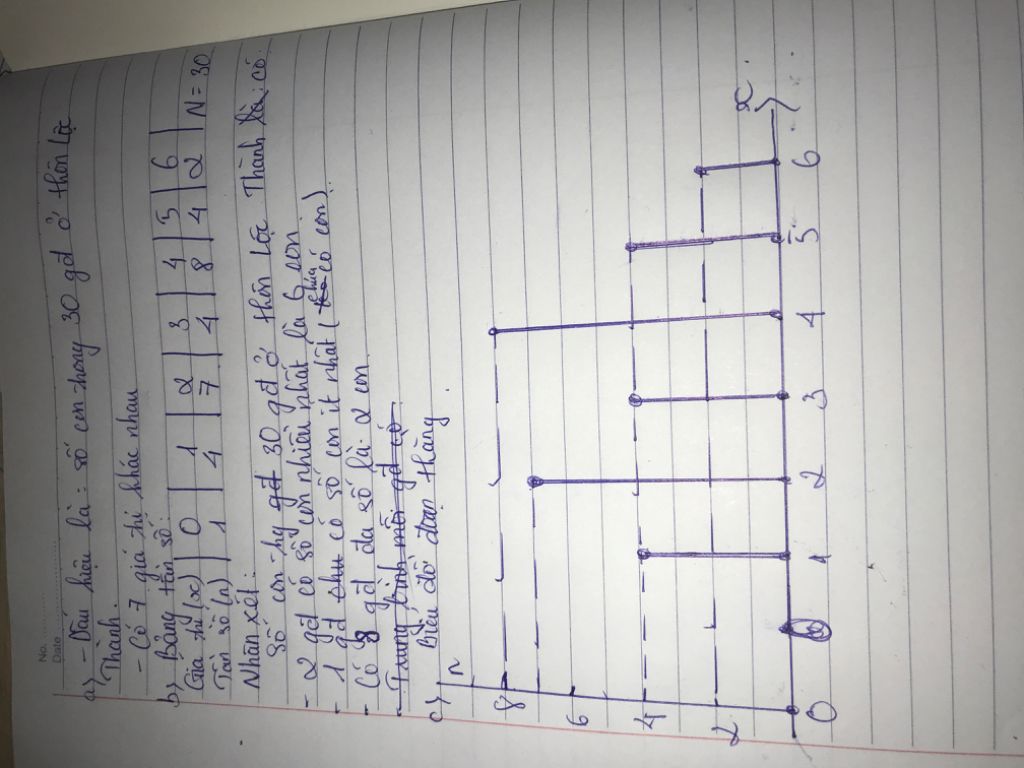 No.
Date
a) - Dấu hiệu là: số con trong 30 gđ ở thôn Lộc
Thành.
- Có 7 giá trị khác nhau
b) Bảng tần số:
Giá trị (x) | 0 | 1 | 2 | 3 | 4 | 5 | 6 |
Tần số (n) | 1 | 4 | 7 | 4 | 8 | 4 | 2 | N = 30
Nhận xét:
Số con trg gđ 30 gđ ở thôn Lộc Thành là: có:
- 2 gđ có số con nhiều nhất là 6 con
- 1 gđ có số con ít nhất (chưa có con).
- Có 8 gđ đa số là 2 con
- Trung bình mỗi gđ có
c) Biểu đồ đoạn thẳng
n
8
6
4
2
0 1 2 3 4 5 6
x